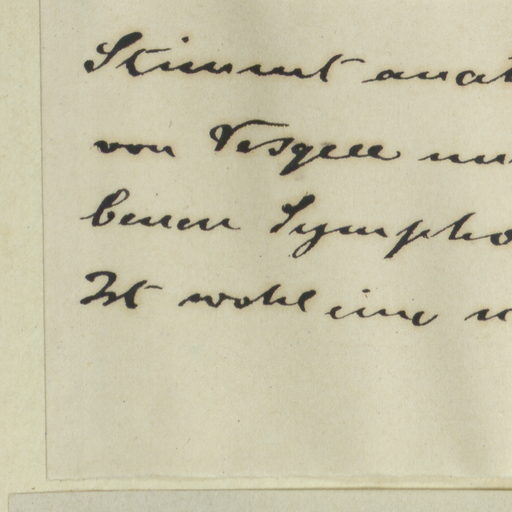 Stimmt anat
von Vesque un
benen Sympho
Ist wohl eine